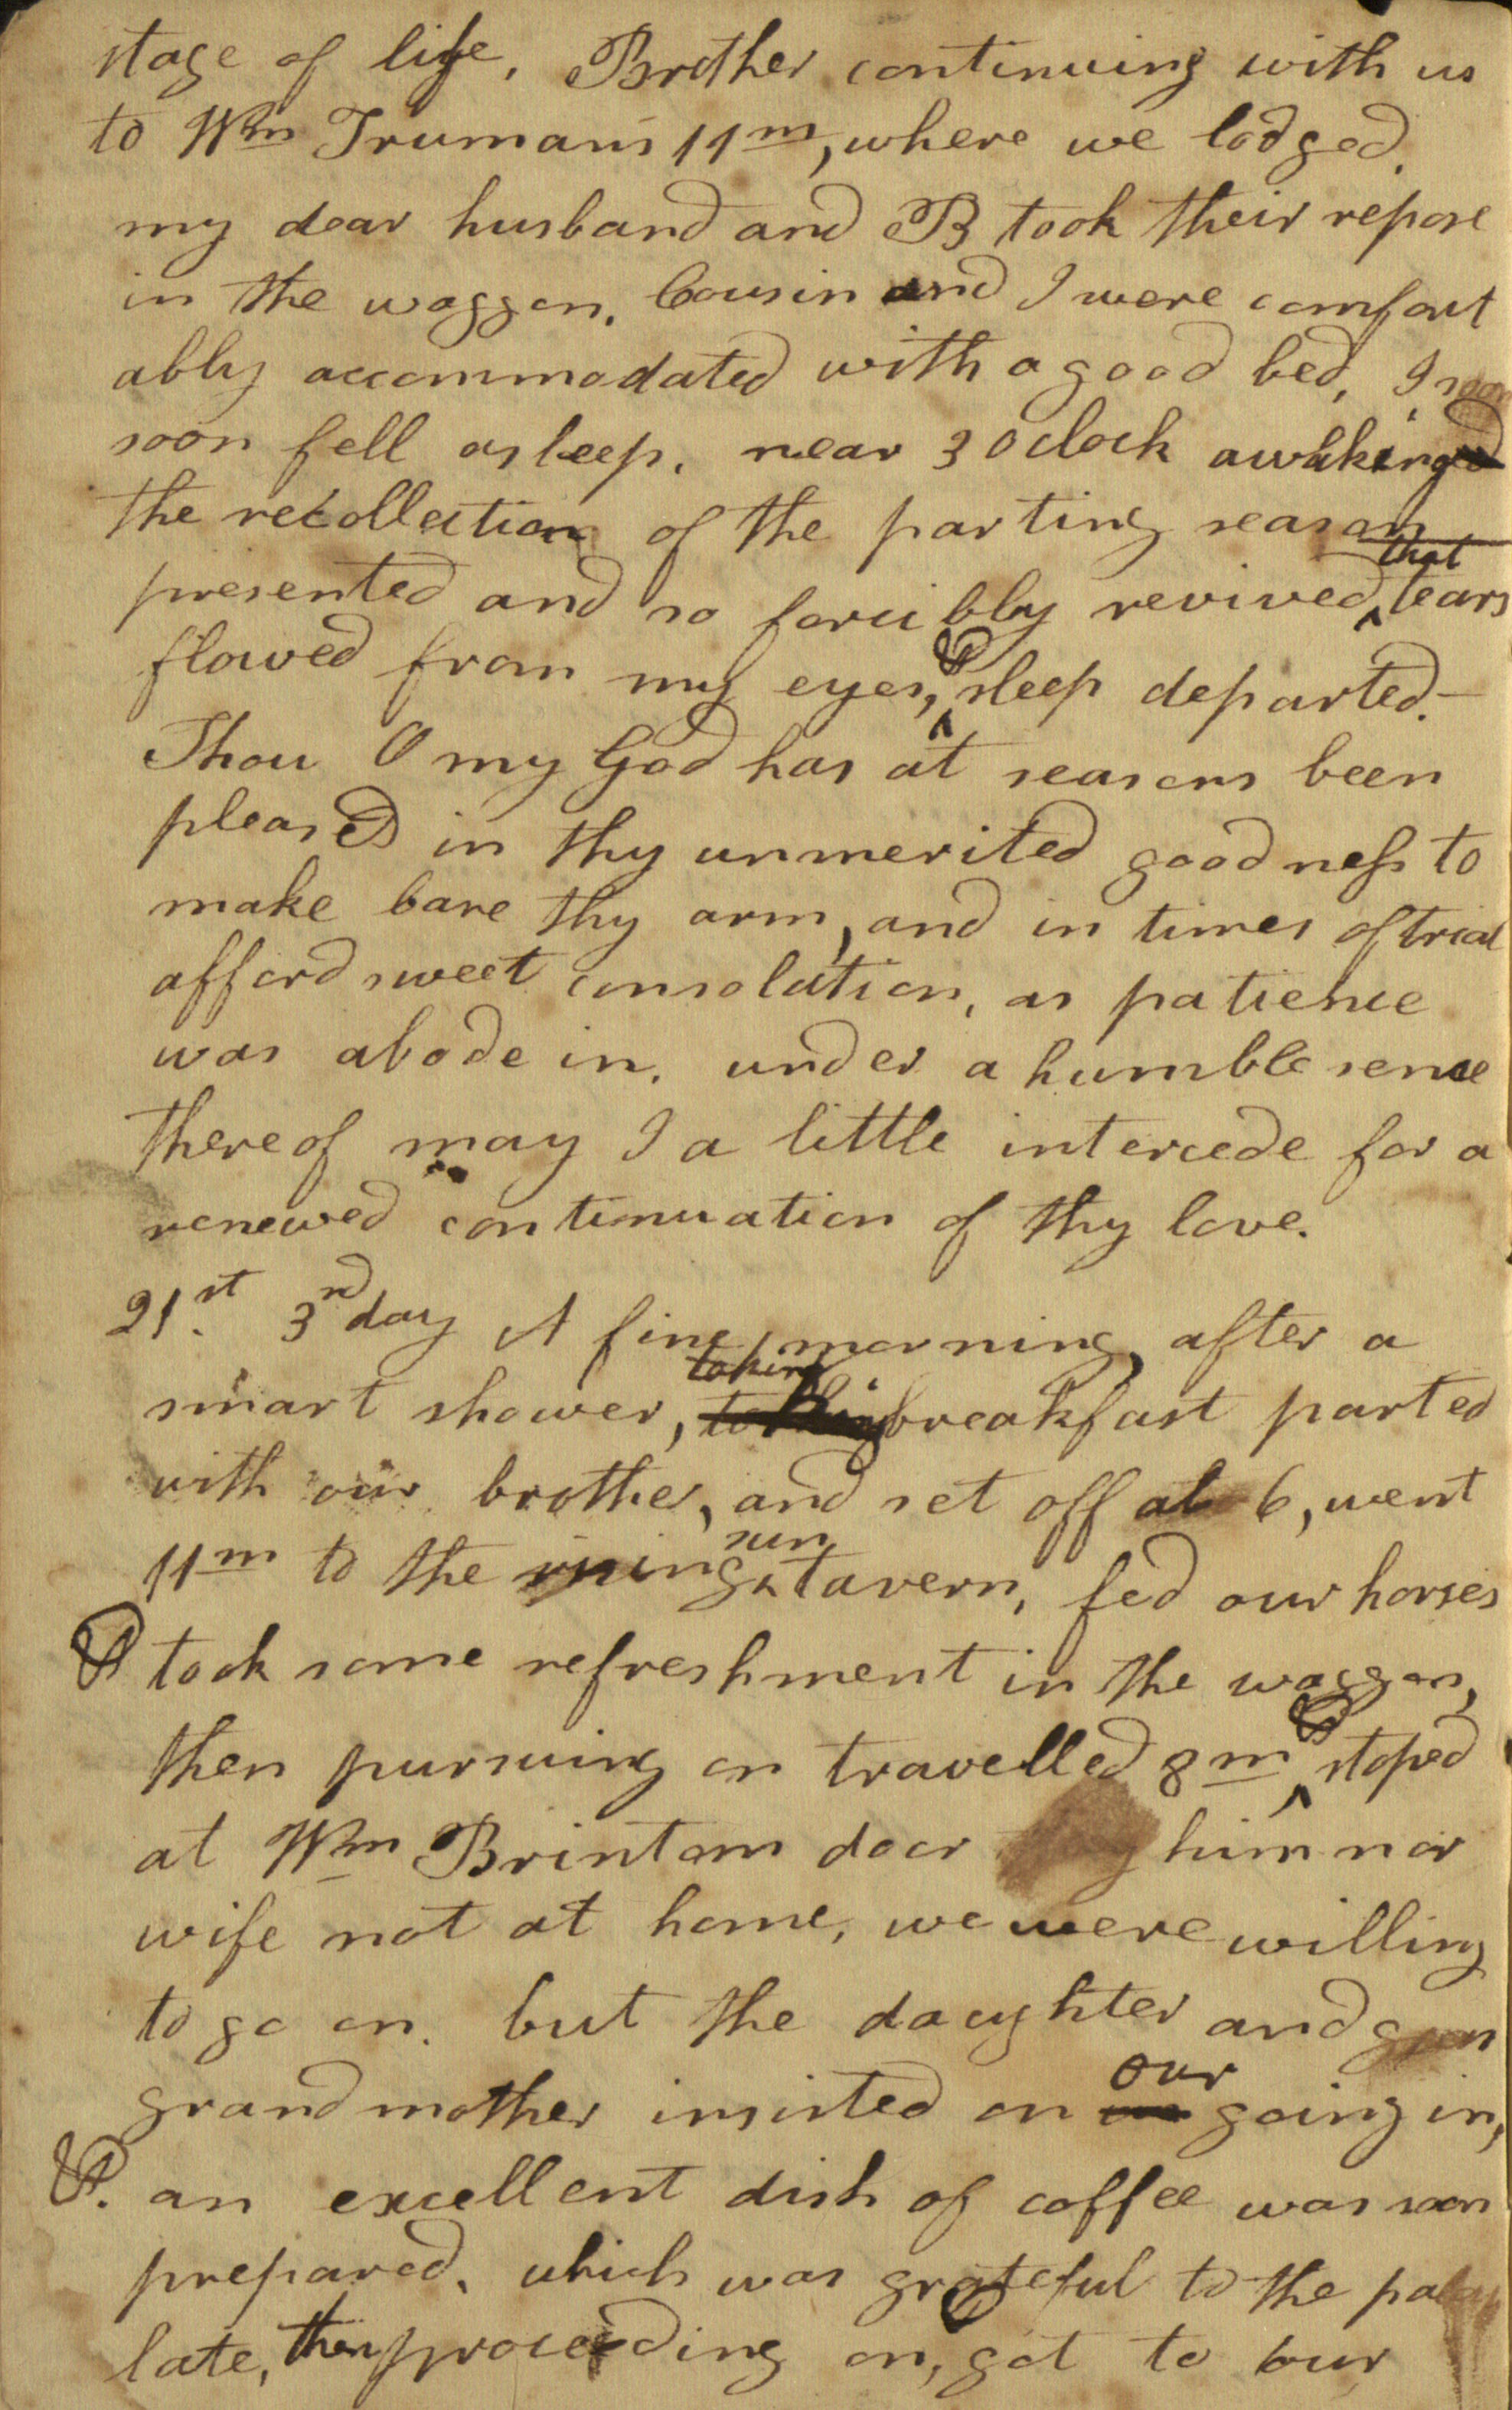 stage of life, Brother continuing with us
to Wm Trumans 11m, where we lodged,
my dear husband and B took their repose
in the waggon, Cousin and I were comfort
ably accommodated with a good bed, I
soon fell asleep, near 3 oclock awaking
the recollection of the parting season
presented and so forcibly revived that tears
flowed from my eyes, & sleep departed.—
Thou O my God has at seasons been
pleased in thy unmerited goodness to
make bare thy arm, and in times of trial
afford sweet consolation, as patience
was abode in, under a humble sence
thereof may I a little intercede for a
renewed continuation of thy love.
21st. 3rd day A fine morning, after a
smart shower, taking breakfast parted
with our brother, and set off at 6, went
11m to the rising sun tavern, fed our horses
& took some refreshment in the waggon,
then pursuing on travelled 8m & stoped
at Wm Brintons door him nor
wife not at home, we were willing
to go on, but the daughter and
grandmother insisted on our going in,
&. an excellent dish of coffee was soon
prepared, which was grateful to the pa
late, then proceeding on, got to our